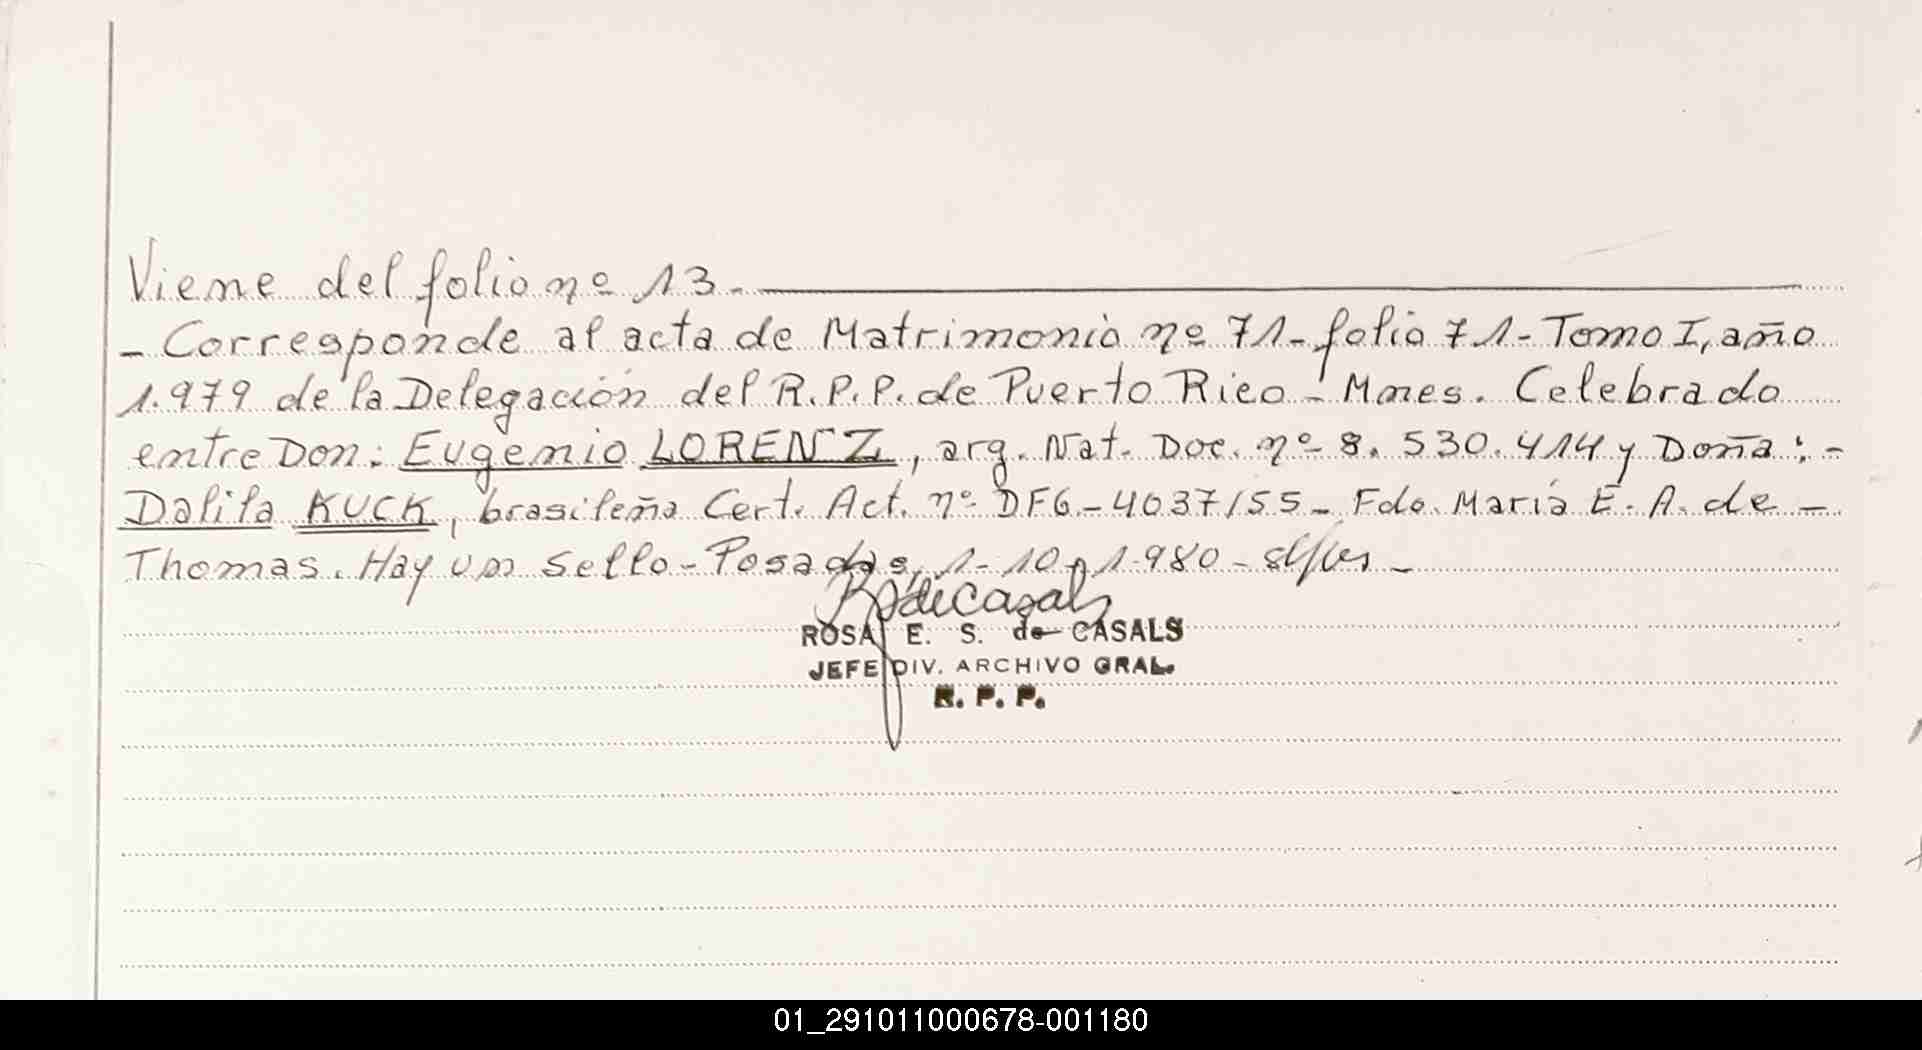 Viene del folio nº 13.-
- Corresponde al acta de Matrimonio nº 71- folio 71- Tomo I, año
1.979 de la Delegación del R.P.P. de Puerto Rico - Mnes. Celebrado
entre Don: Eugenio LORENZ, arg. Nat. Doc. nº 8.530.414 y Doña: -
Dalila KUCK, brasileña Cert. Act. nº DFG-4037/55- Fdo. María E. A. de -
Thomas. Hay un sello- Posadas, 1-10-1.980-
ROSA E. S. de CASALS
JEFE DIV. ARCHIVO GRAL.
R. P. P.
01_291011000678-001180